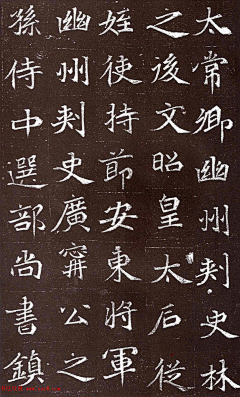 太常卿幽州刺史林
之後文昭皇太后從
姪使持節安東將軍
幽州刺史廣寗公之
孫侍中選部尚書鎮